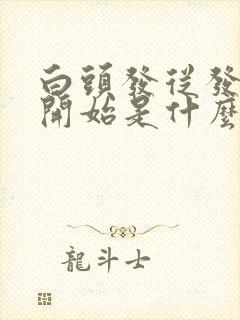 白頭發從發
開始是什麼
龍斗士